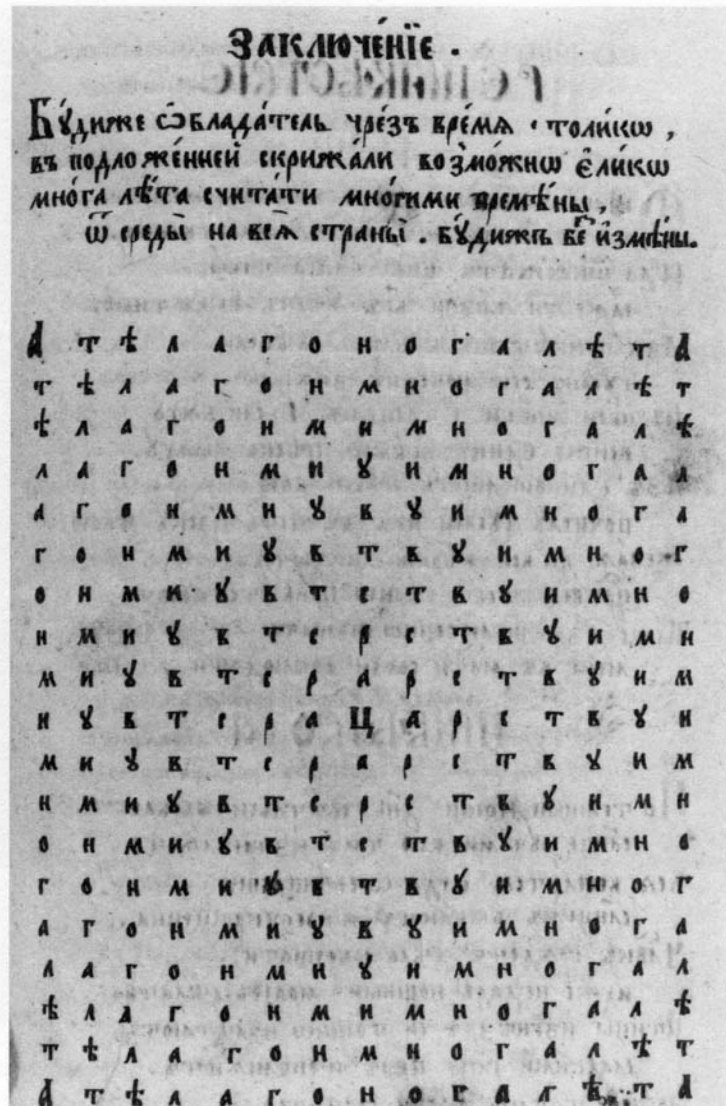 ЗАКЛЮЧЕ́НЇЕ .
Бꙋ́диже ѡ҆блада́тель чре́зъ вре́мѧ · толи́кѡ ,
въ подложе́нней скрижа́ли возмо́жнѡ є҆ли́кѡ
мно́га лѣ́та считати мно́гими времѣ́ны ,
ѿ среды̀ на всѧ̀ страны̀ . бꙋ́дижъ без̾ измѣ́ны .
А т ѣ л а г о н о г а л ѣ т А
т ѣ л а г о н м н о г а л ѣ т
ѣ л а г о н м и м н о г а л ѣ
л а г о н м и ꙋ и м н о г а л
а г о н м и ꙋ в ꙋ и м н о г а
г о н м и ꙋ в т в ꙋ и м н о г
о н м и ꙋ в т с т в ꙋ и м н о
н м и ꙋ в т с р с т в ꙋ и м н
м и ꙋ в т с р а р с т в ꙋ и м
и ꙋ в т с р а Ц а р с т в ꙋ и
м и ꙋ в т с р а р с т в ꙋ и м
н м и ꙋ в т с р с т в ꙋ и м н
о н м и ꙋ в т с т в ꙋ и м н о
г о н м и ꙋ в т в ꙋ и м н о г
а г о н м и ꙋ в ꙋ и м н о г а
л а г о н м и ꙋ и м н о г а л
ѣ л а г о н м и м н о г а л ѣ
т ѣ л а г о н м н о г а л ѣ т
А т ѣ л а г о н о г а л ѣ т А